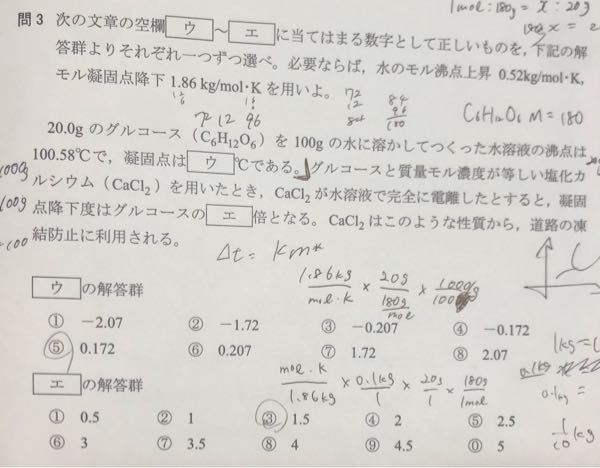 1mol : 180g = x : 20g
問3 次の文章の空欄 ウ ～ エ に当てはまる数字として正しいものを，下記の解
答群よりそれぞれ一つずつ選べ。必要ならば，水のモル沸点上昇 0.52kg/mol・K，
モル凝固点降下 1.86 kg/mol・K を用いよ。
72
12
84
96
180
C6H12O6 M=180
72 12 96
20.0g のグルコース（C6H12O6）を 100g の水に溶かしてつくった水溶液の沸点は
100.58℃で，凝固点は ウ ℃である。グルコースと質量モル濃度が等しい塩化カ
ルシウム（CaCl2）を用いたとき，CaCl2が水溶液で完全に電離したとすると，凝固
点降下度はグルコースの エ 倍となる。CaCl2はこのような性質から，道路の凍
結防止に利用される。
1000g
100g
Δt = km
1.86kg/mol・K × 20g/180g/mol × 1000g/100g
ウ の解答群
① −2.07 ② −1.72 ③ −0.207 ④ −0.172
⑤ 0.172 ⑥ 0.207 ⑦ 1.72 ⑧ 2.07
エ の解答群
mol・K/1.86kg × 0.1kg/1 × 20g/1 × 180g/1mol
0.1kg =
① 0.5 ② 1 ③ 1.5 ④ 2 ⑤ 2.5
⑥ 3 ⑦ 3.5 ⑧ 4 ⑨ 4.5 ⓪ 5
1/10 kg